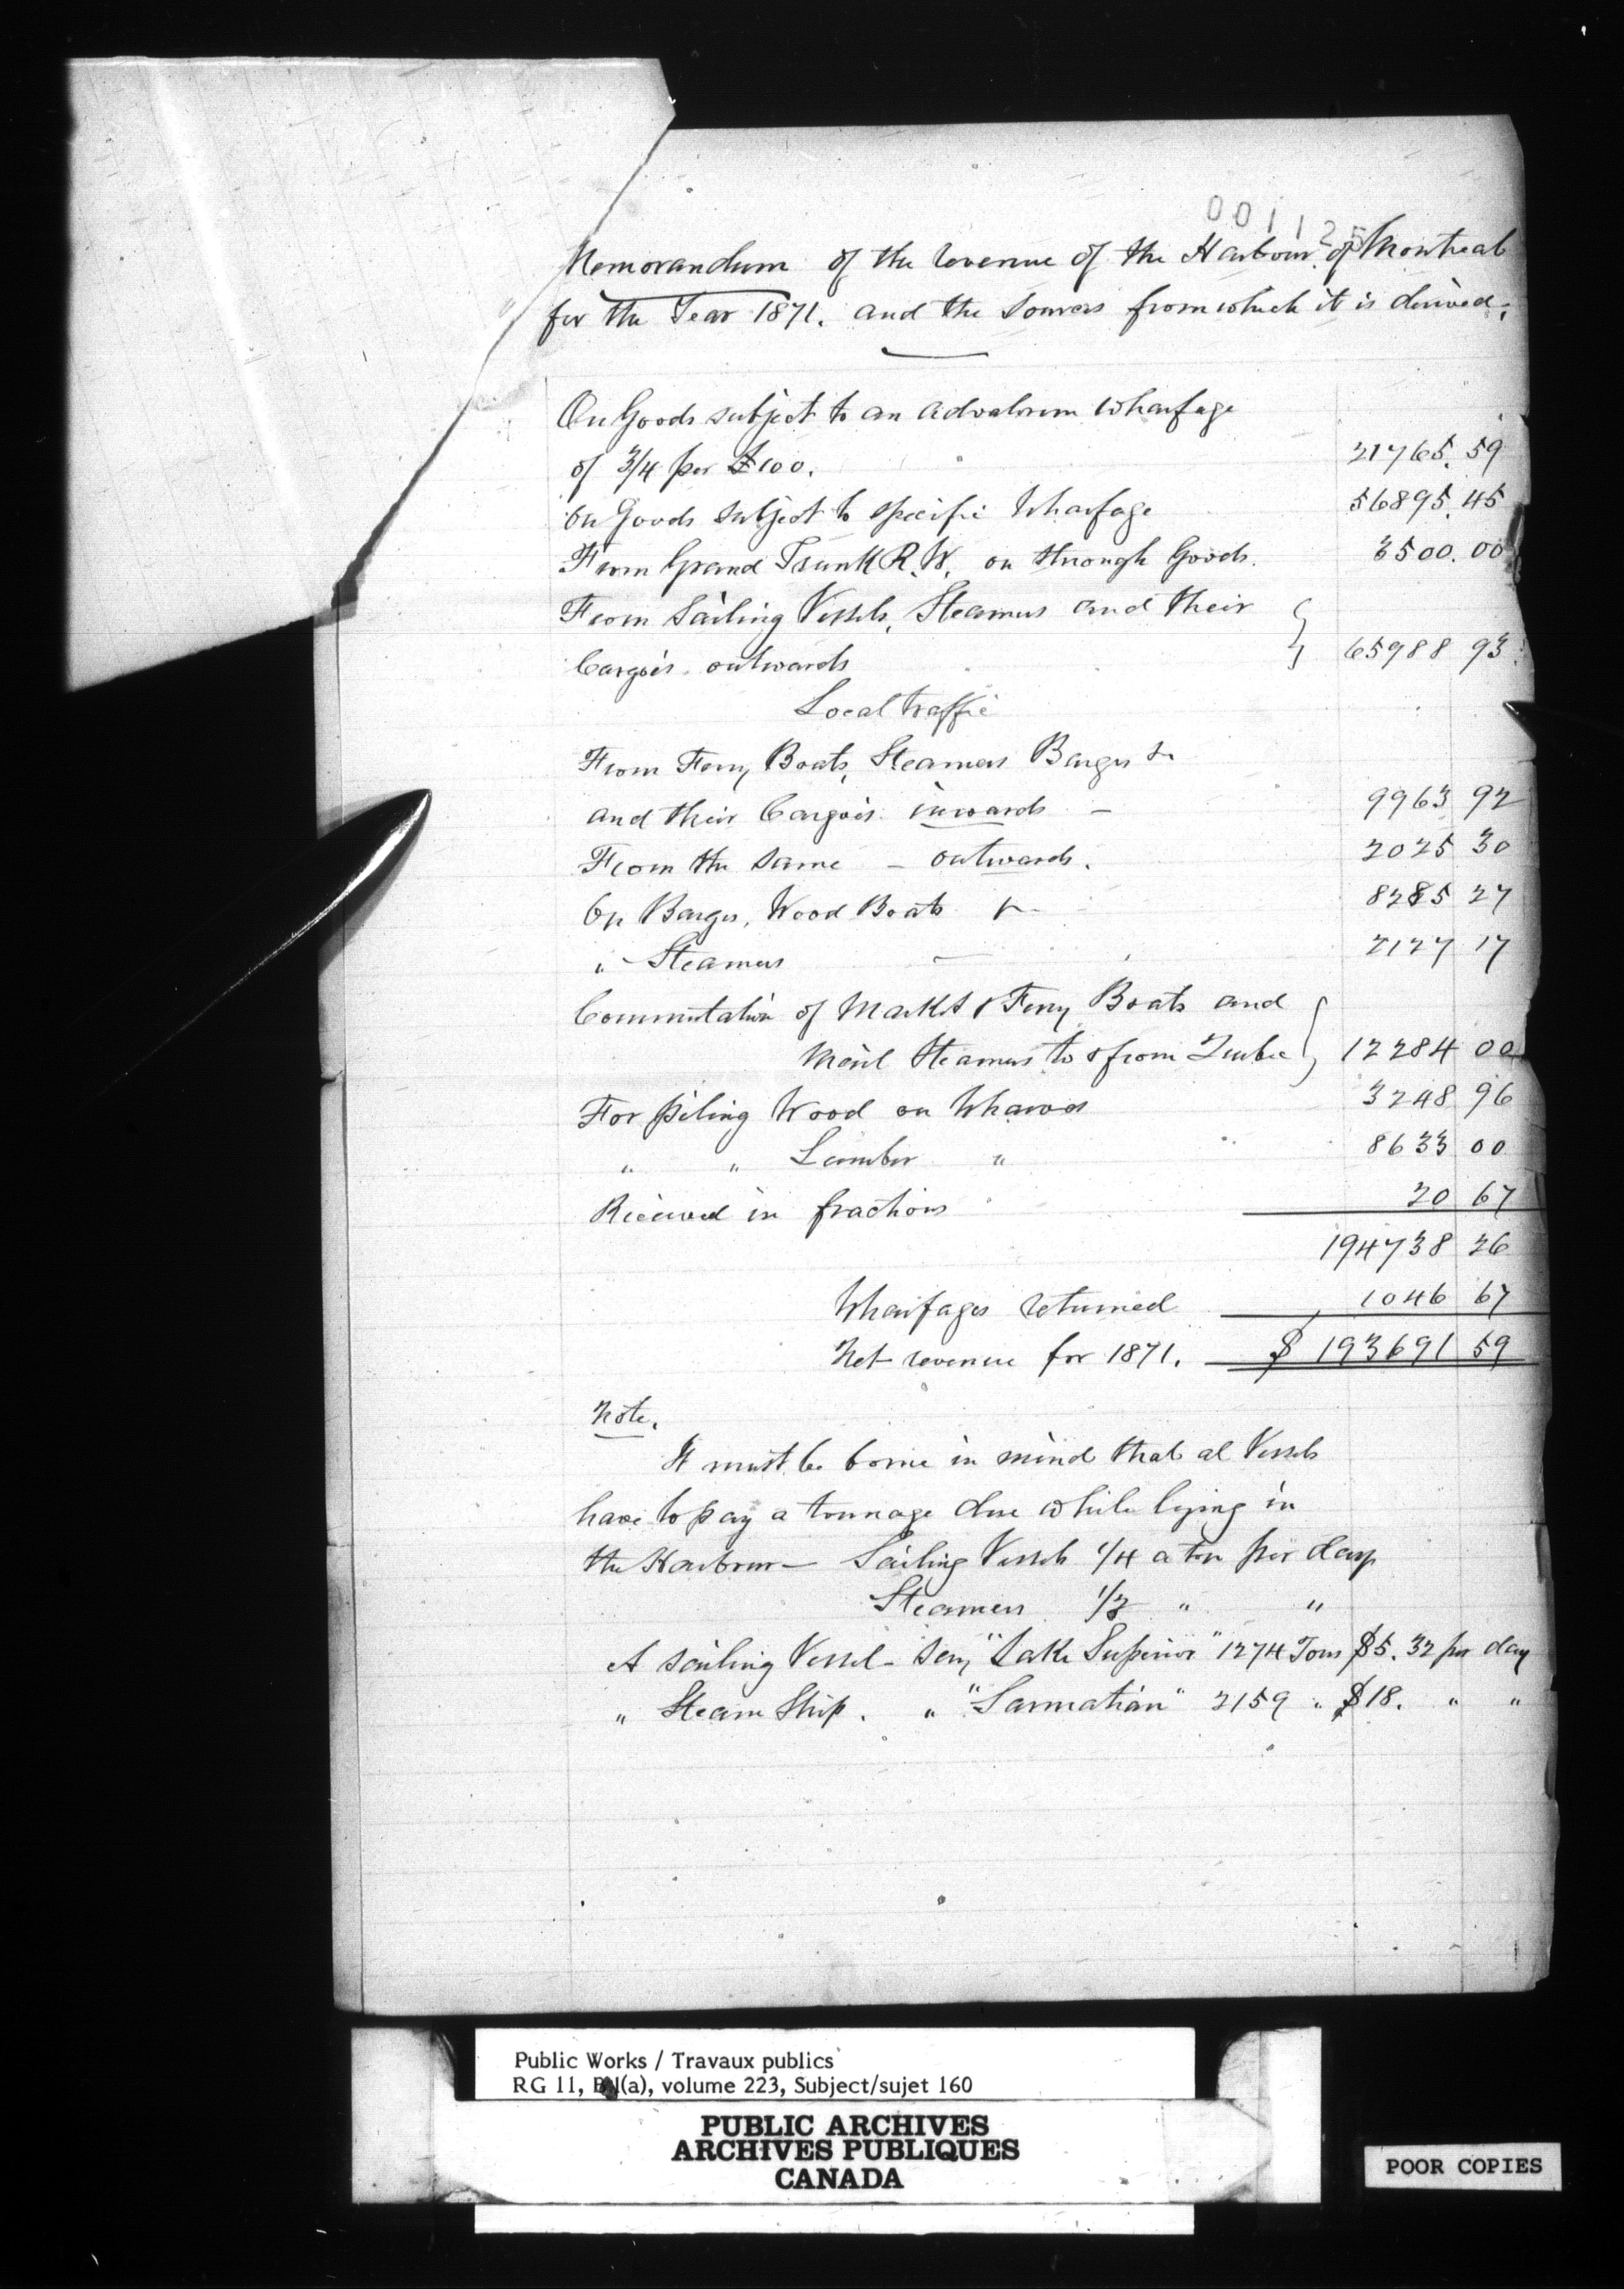 001125
Memorandum of the revenue of the Harbour of Montreal
for the Year 1871. and the sources from which it is derived.
On Goods subject to an advalorem wharfage
of 3/4 per $100. 21765. 59
On Goods subject to specific Wharfage 56895. 45
From Grand Trunk R.W. on through Goods. 3500. 00
From Sailing Vessels, Steamers and their
Cargoes outwards 65988 93
Local traffic
From Ferry Boats, Steamers Barges &c
and their Cargoes inwards – 9963 92
From the same – outwards. 2025 30
On Barges, Wood Boats &c 8285 27
" Steamers – 2127 17
Commutation of Market & Ferry Boats and
Mail Steamers to & from Quebec 12284 00
For piling Wood on Wharves 3248 96
" " Lumber " 8633 00
Received in fractions 20 67
194738 26
Wharfages returned 1046 67
Net revenue for 1871. $ 193691 59
Note.
It must be borne in mind that al Vessels
have to pay a tonnage due while lying in
the Harbour – Sailing Vessels 1/4 a ton per day
Steamers 1/2 " "
A sailing Vessel – say "Lake Superior" 1274 Tons $5.32 per day
" Steam Ship. " "Sarmatian" 2159 " $18. " "
Public Works / Travaux publics
RG 11, (a), volume 223, Subject/sujet 160
PUBLIC ARCHIVES
ARCHIVES PUBLIQUES
CANADA
POOR COPIES